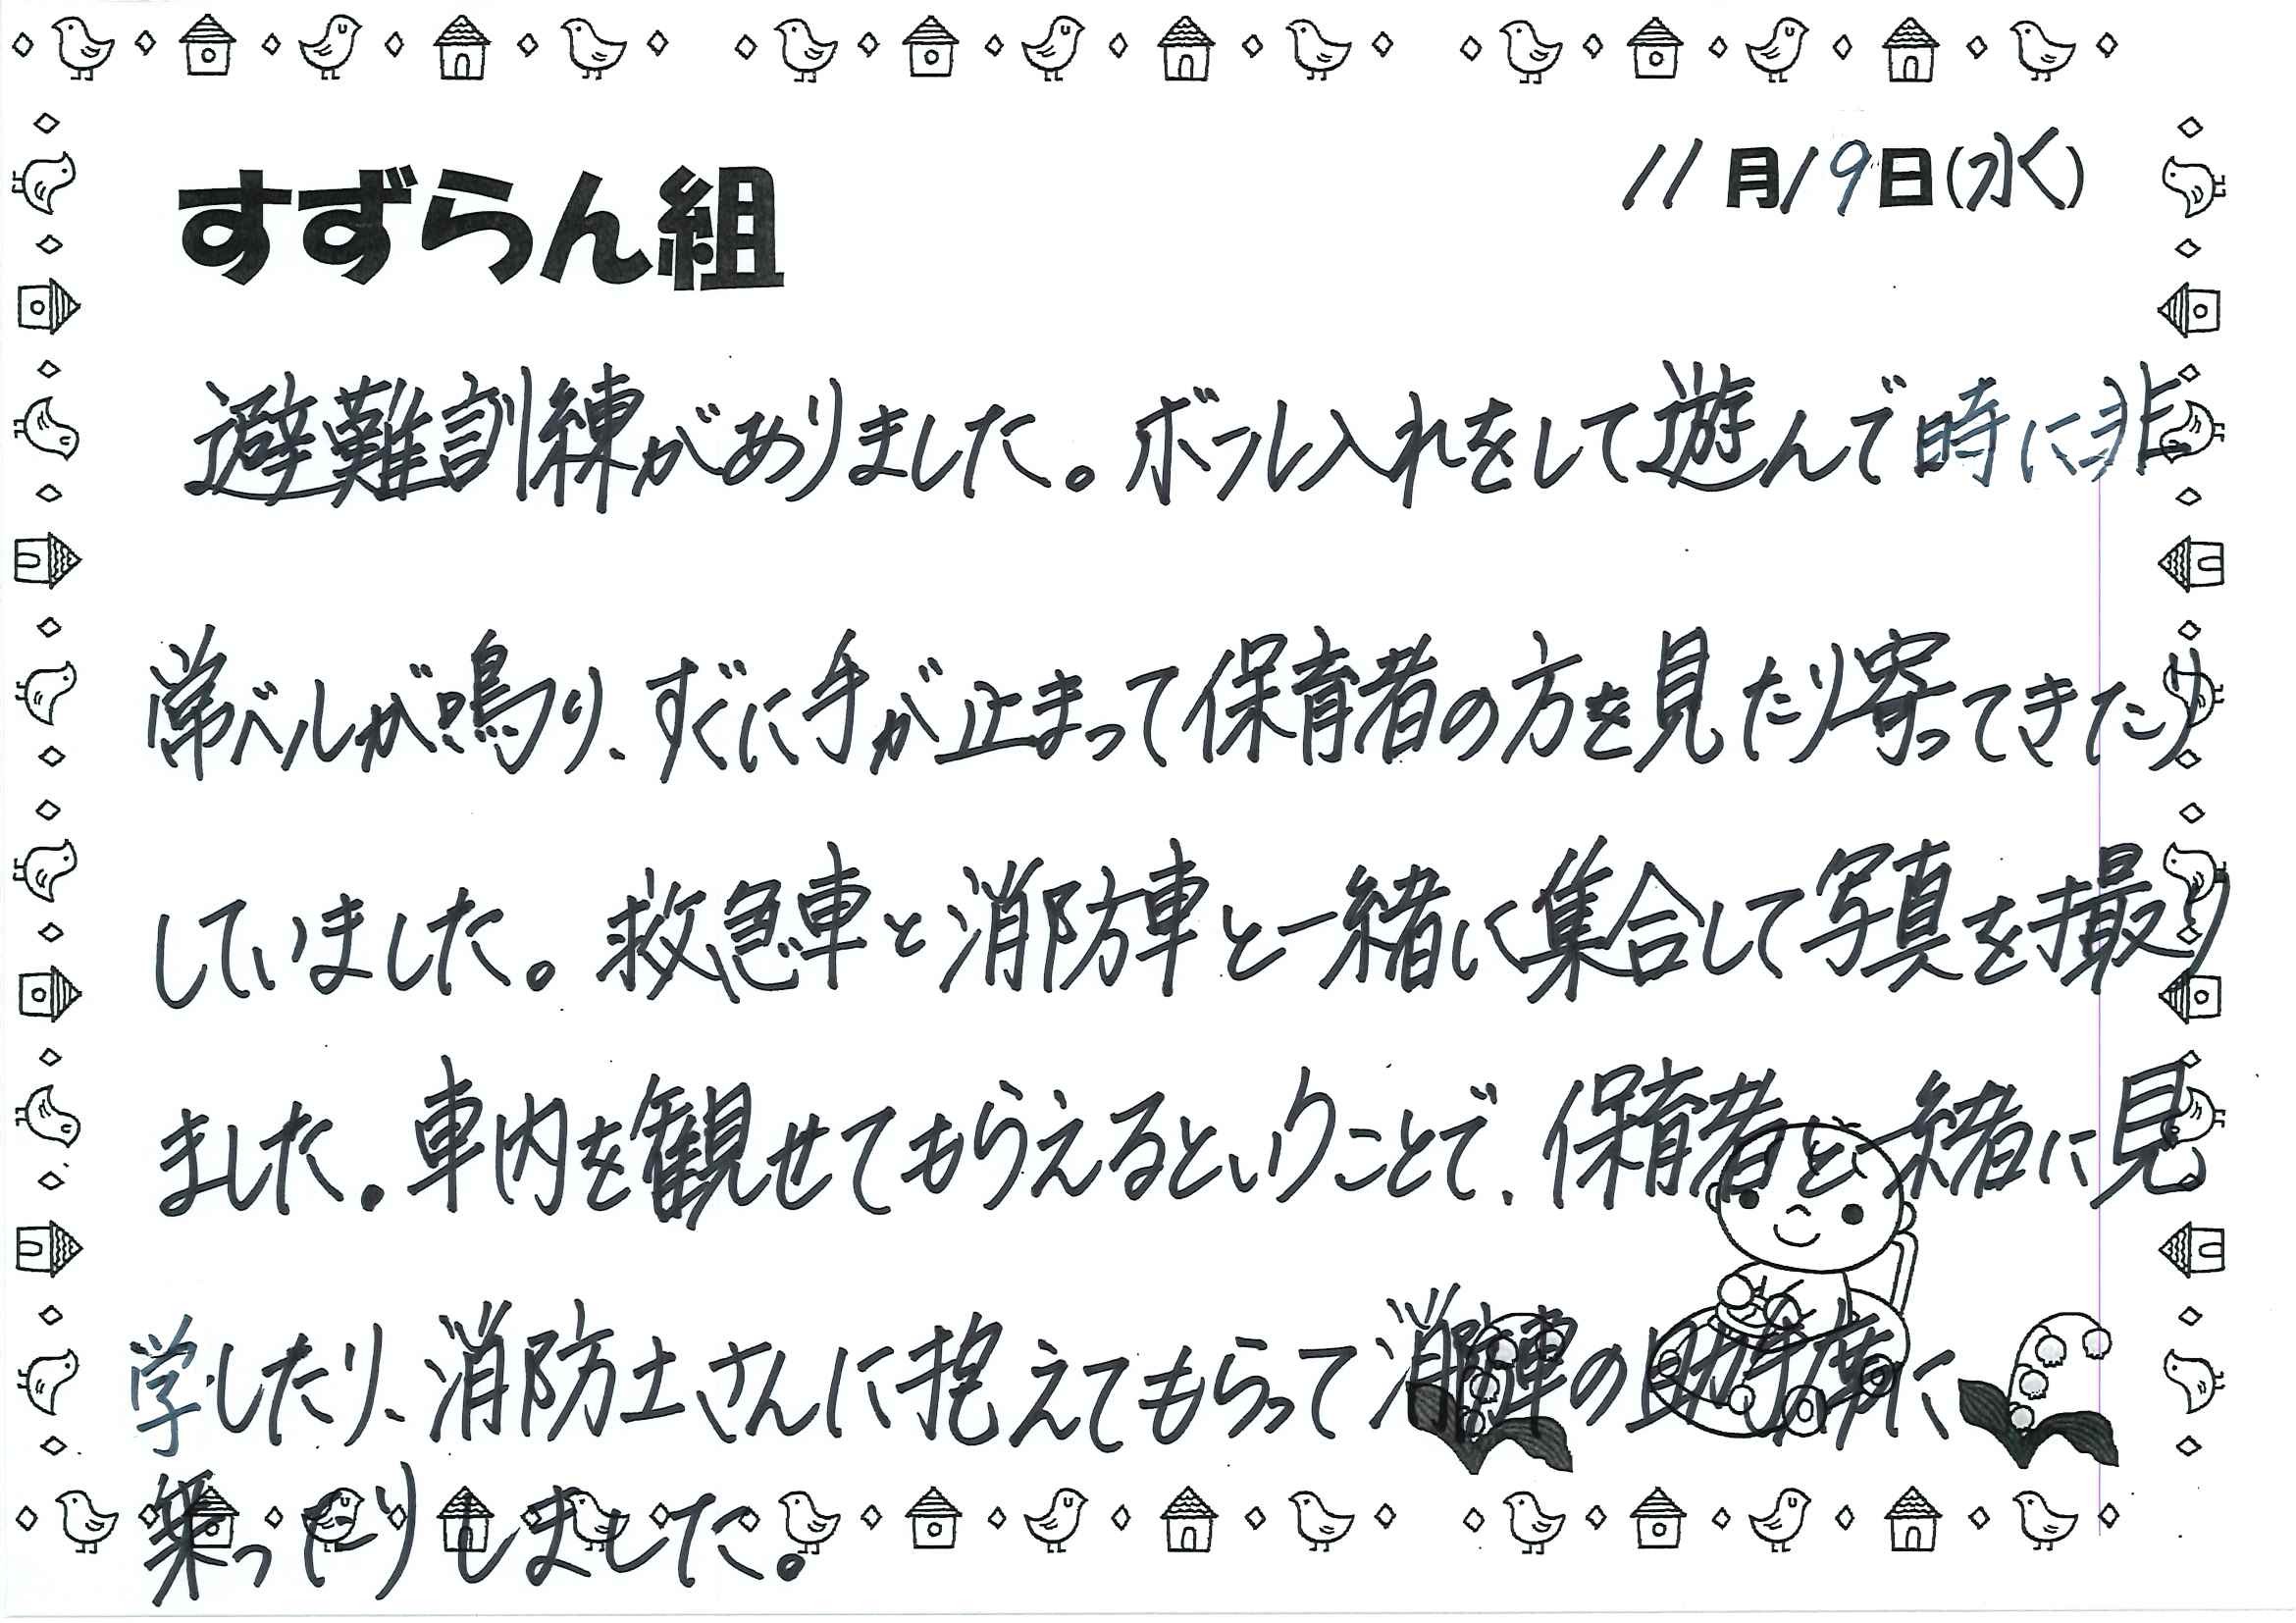 すずらん組
11月19日(水)
避難訓練がありました。ボール入れをして遊んで時に非
常ベルが鳴り、すぐに手が止まって保育者の方を見たり寄ってきたり
していました。救急車と消防車と一緒に集合して写真を撮り
ました。車内を観せてもらえるということで、保育者と一緒に見
学したり、消防士さんに抱えてもらって消防車の助手席に
乗ったりしました。